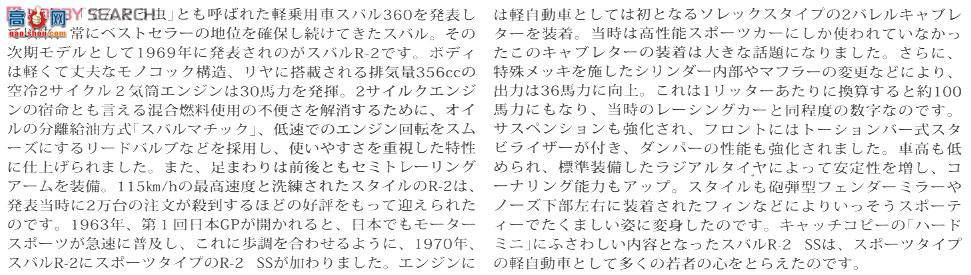 虫」とも呼ばれた軽乗用車スバル360を発表し
常にベストセラーの地位を確保し続けてきたスバル。その
次期モデルとして1969年に発表されのがスバルR-2です。ボディ
は軽くて丈夫なモノコック構造、リヤに搭載される排気量356ccの
空冷2サイクル２気筒エンジンは30馬力を発揮。2サイルクエンジ
ンの宿命とも言える混合燃料使用の不便さを解消するために、オイ
ルの分離給油方式「スバルマチック」、低速でのエンジン回転をスム
ーズにするリードバルブなどを採用し、使いやすさを重視した特性
に仕上げられました。また、足まわりは前後ともセミトレーリング
アームを装備。115km/hの最高速度と洗練されたスタイルのR-2は、
発表当時に2万台の注文が殺到するほどの好評をもって迎えられた
のです。1963年、第１回日本GPが開かれると、日本でもモーター
スポーツが急速に普及し、これに歩調を合わせるように、1970年、
スバルR-2にスポーツタイプのR-2 SSが加わりました。エンジンに
は軽自動車としては初となるソレックスタイプの2バレルキャブレ
ターを装着。当時は高性能スポーツカーにしか使われていなかっ
たこのキャブレターの装着は大きな話題になりました。さらに、
特殊メッキを施したシリンダー内部やマフラーの変更などにより、
出力は36馬力に向上。これは1リッターあたりに換算すると約100
馬力にもなり、当時のレーシングカーと同程度の数字なのです。
サスペンションも強化され、フロントにはトーションバー式スタ
ビライザーが付き、ダンパーの性能も強化されました。車高も低
められ、標準装備したラジアルタイヤによって安定性を増し、コ
ーナリング能力もアップ。スタイルも砲弾型フェンダーミラーや
ノーズ下部左右に装着されたフィンなどによりいっそうスポーテ
ィーでたくましい姿に変身したのです。キャッチコピーの「ハード
ミニ」にふさわしい内容となったスバルR-2 SSは、スポーツタイプ
の軽自動車として多くの若者の心をとらえたのです。